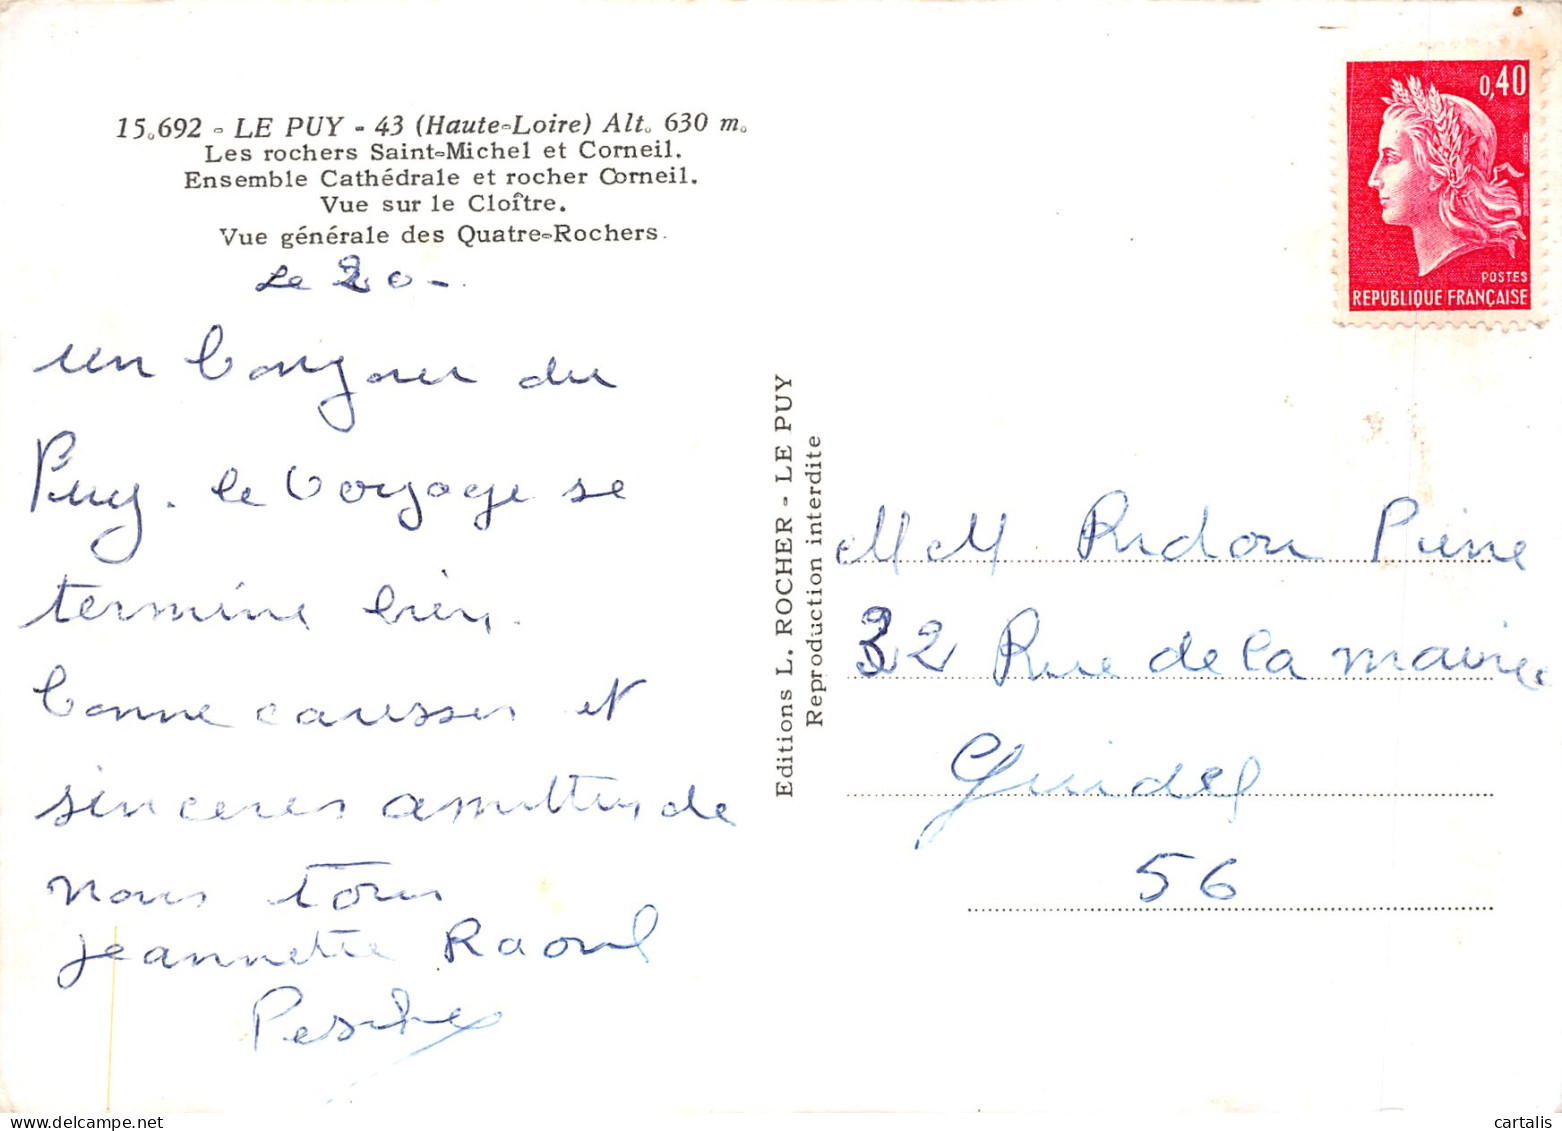 15.692 - LE PUY - 43 (Haute-Loire) Alt. 630 m.
Les rochers Saint-Michel et Corneil.
Ensemble Cathédrale et rocher Corneil.
Vue sur le Cloître.
Vue générale des Quatre-Rochers.
Le 20 -
un bonjour du
Puy. le voyage se
termine bien.
bonne causses et
sinceres amitties de
nous tous
jeannette Raoul
Editions L. ROCHER - LE PUY
Reproduction interdite
0,40
POSTES
REPUBLIQUE FRANÇAISE
M M Ridou Pierre
32 Rue de la mairie
Guidel
56
www.delcampe.net
cartalis